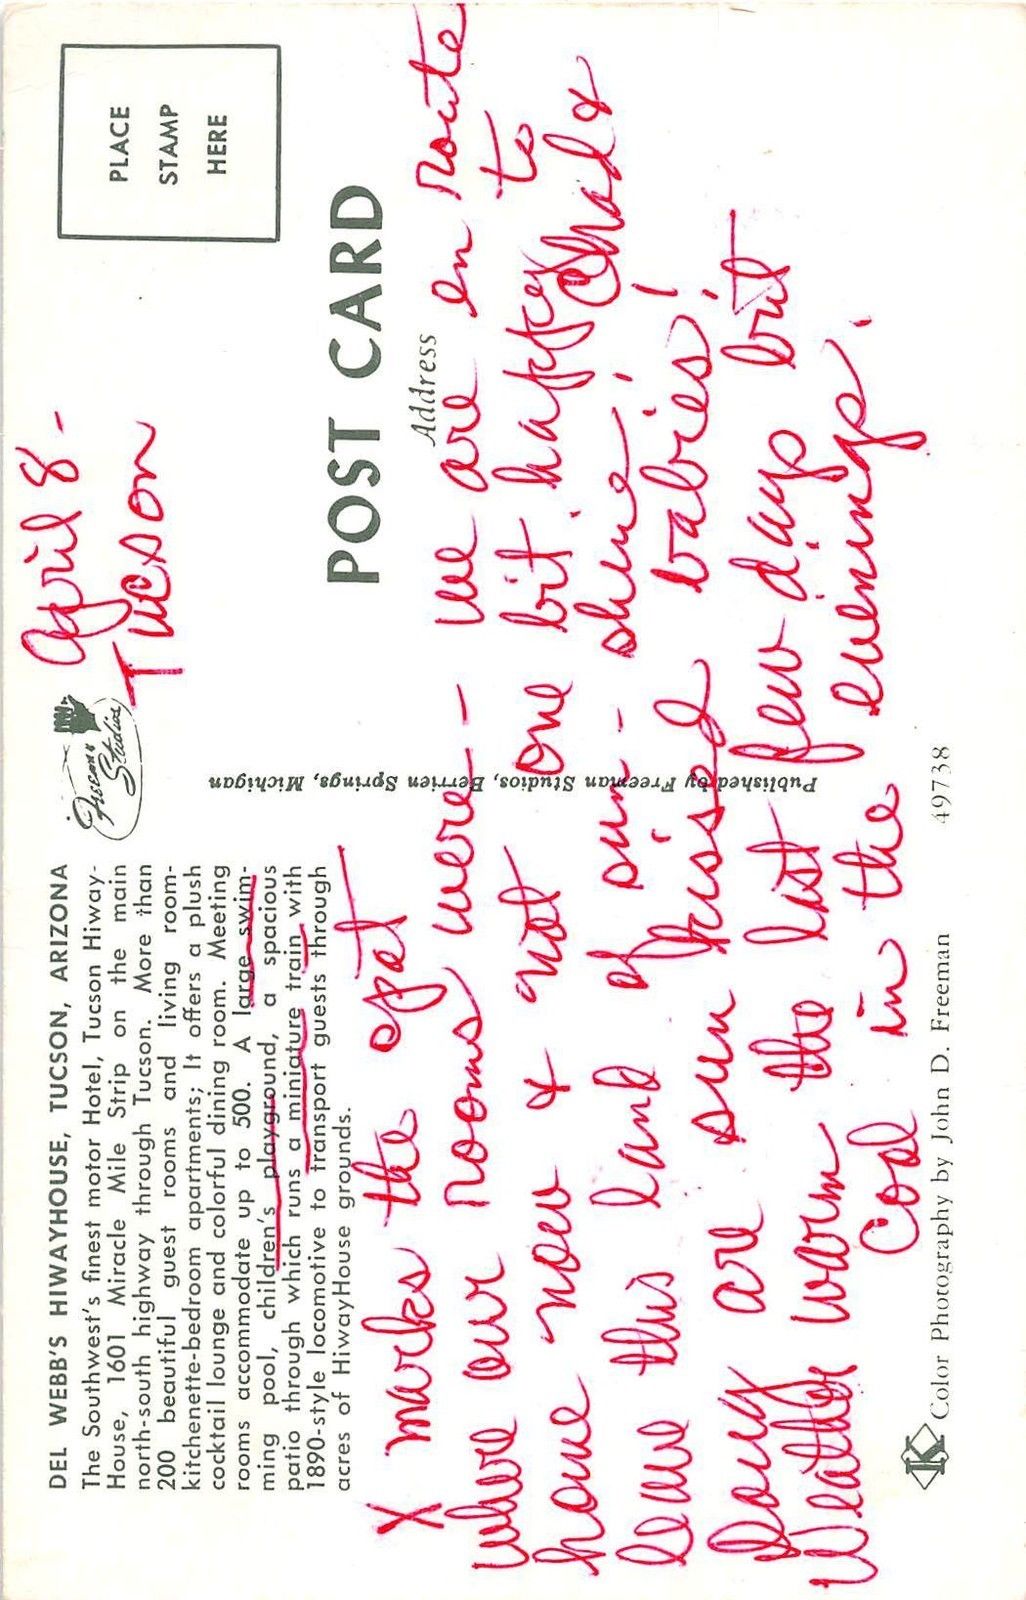 DEL WEBB'S HIWAYHOUSE, TUCSON, ARIZONA
The Southwest's finest motor Hotel, Tucson Hiway-
House, 1601 Miracle Mile Strip on the main
north-south highway through Tucson. More than
200 beautiful guest rooms and living room-
kitchenette-bedroom apartments; It offers a plush
cocktail lounge and colorful dining room. Meeting
rooms accommodate up to 500. A large swim-
ming pool, children's playground, a spacious
patio through which runs a miniature train with
1890-style locomotive to transport guests through
acres of HiwayHouse grounds.
Freeman
Studios
April 8 -
Tucson
PLACE
STAMP
HERE
POST CARD
Address
Published by Freeman Studios, Berrien Springs, Michigan
X marks the spot
where our rooms were — we are en route
home now & not one bit happy to
leave this land of sun - shine! &
Doug are sun kissed babies!
Weather warm the last few days but
Cool in the evenings.
K
Color Photography by John D. Freeman
49738